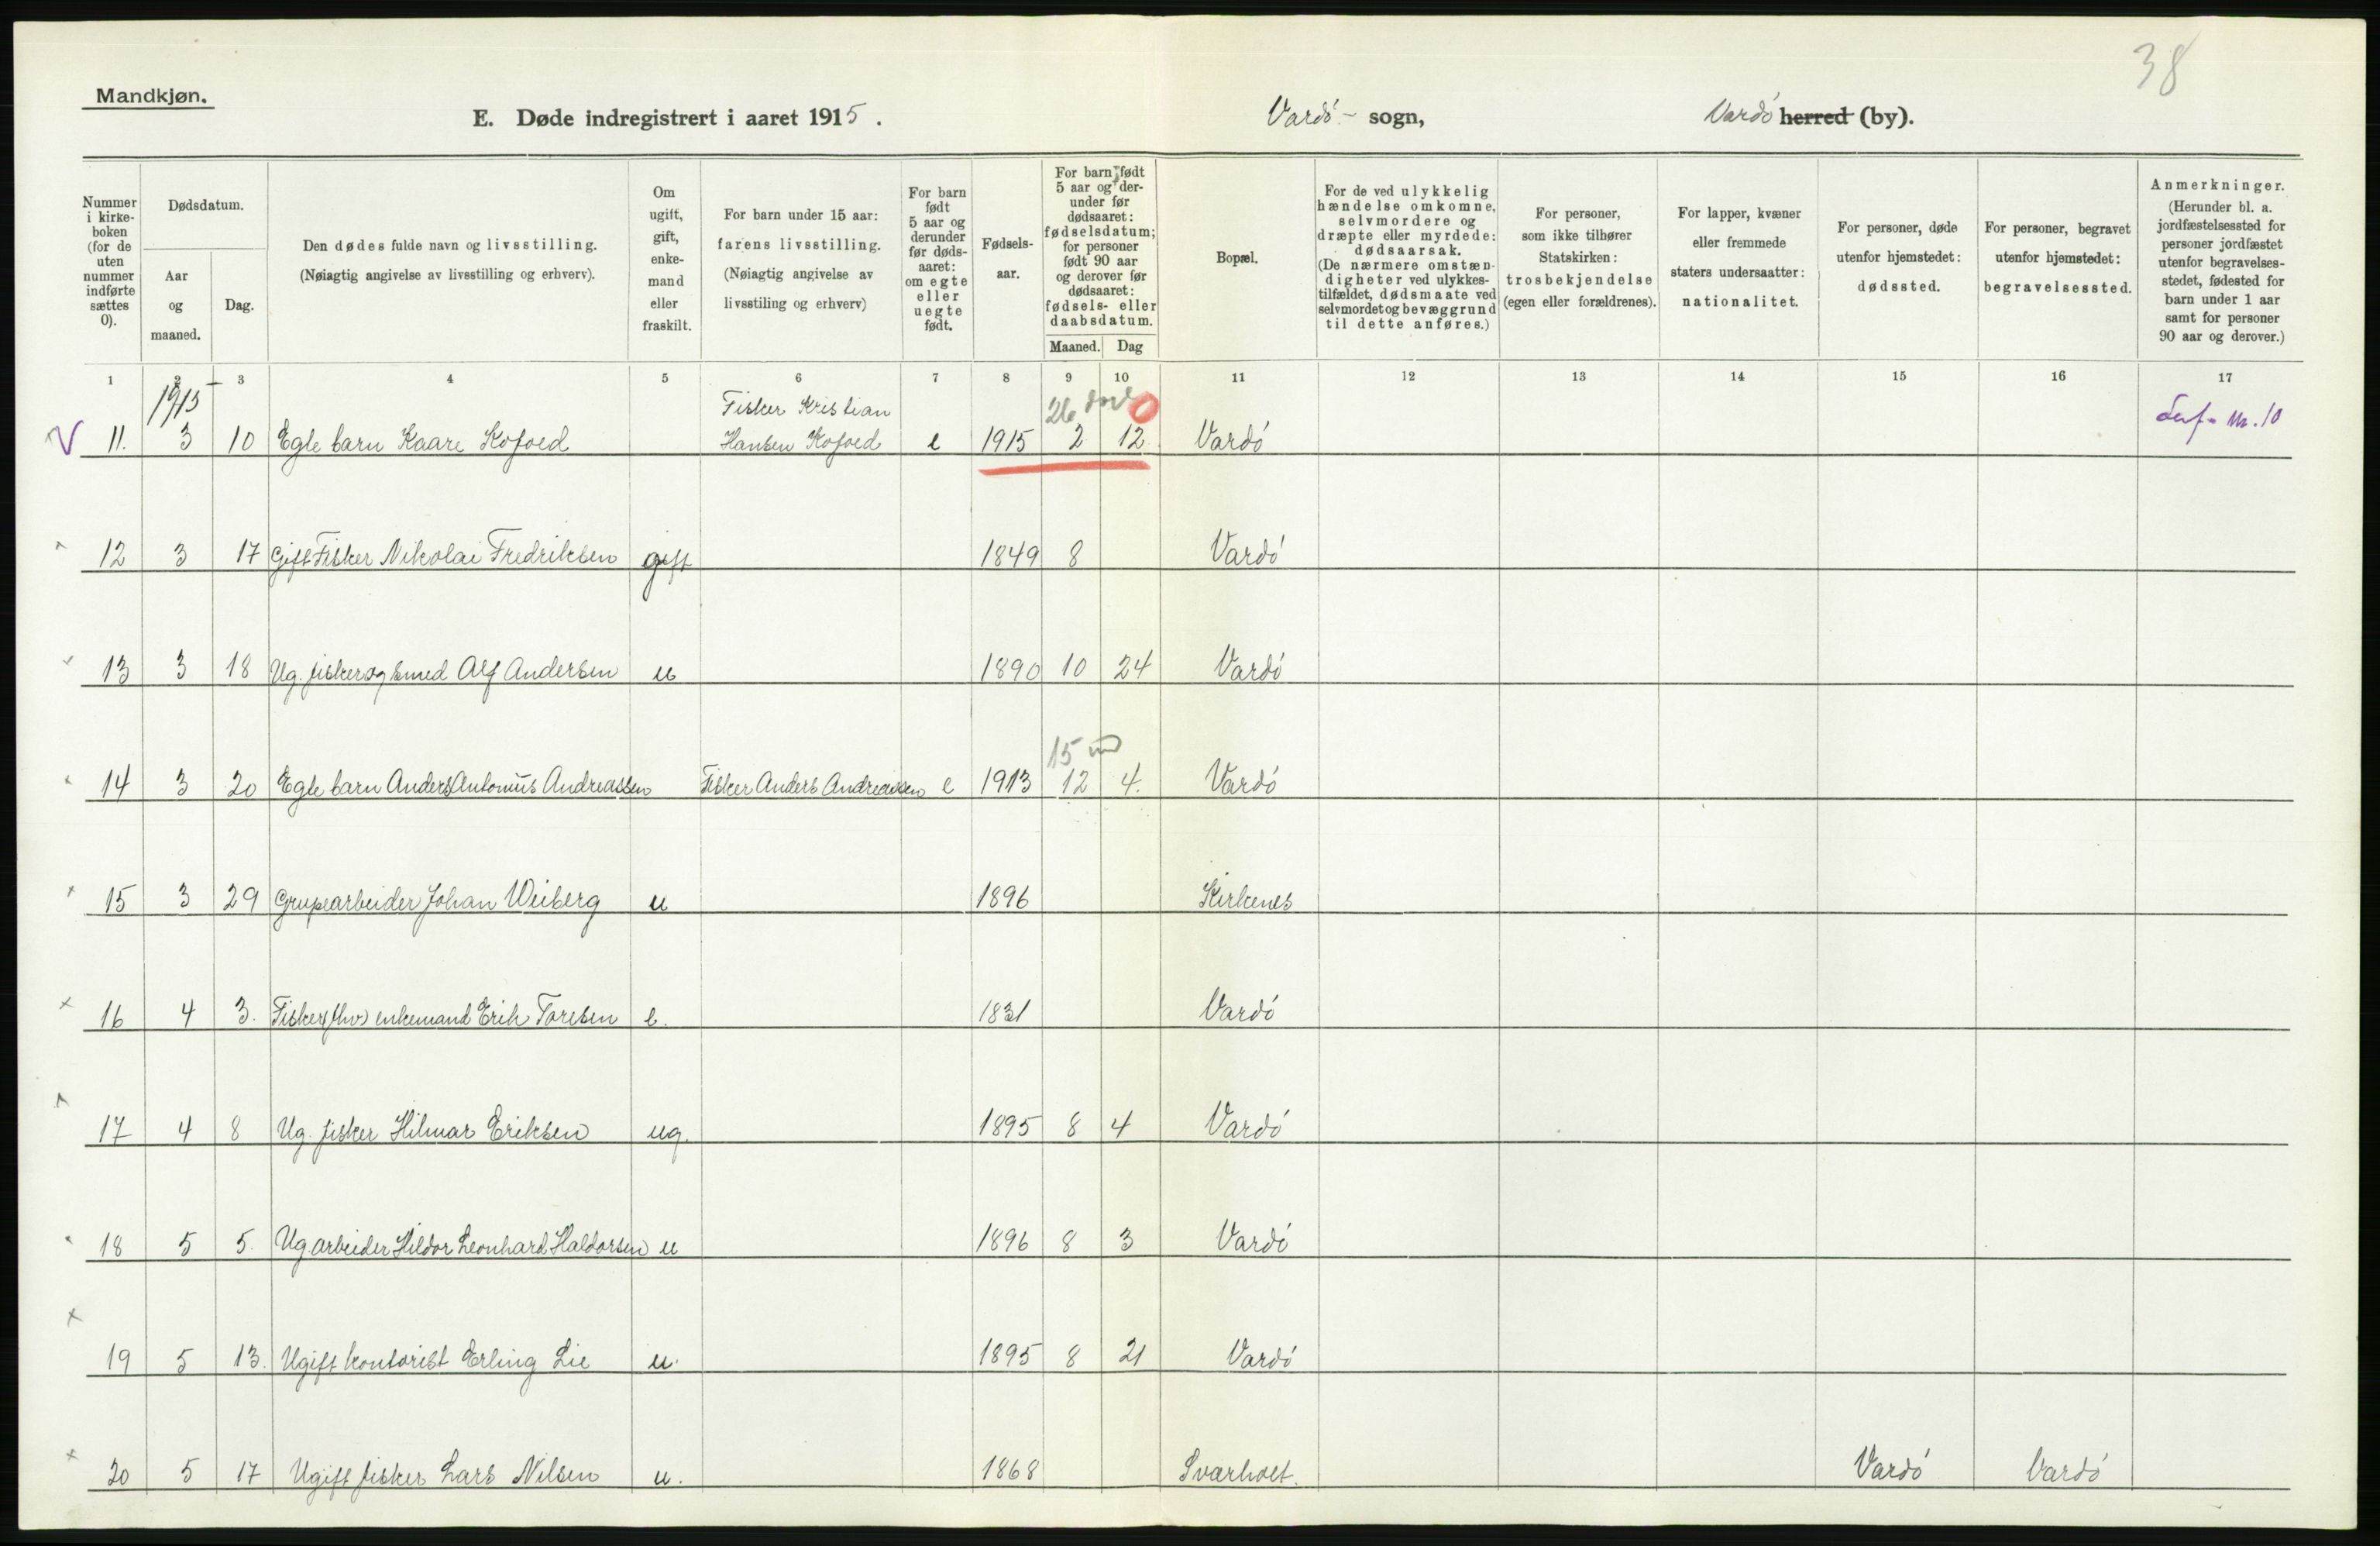 38
Mandkjøn.
E. Døde indregistrert i aaret 1915. Vardø - sogn, Vardø herred (by).
Nummer i kirke-boken (for de uten nummer indførte sættes 0).
Dødsdatum.
Aar og maaned.
Dag.
Den dødes fulde navn og livsstilling.
(Nøiagtig angivelse av livsstilling og erhverv).
Om ugift, gift, enke-mand eller fraskilt.
For barn under 15 aar: farens livsstilling.
(Nøiagtig angivelse av livsstiling og erhverv)
For barn født 5 aar og derunder før døds-aaret: om egte eller uegte født.
Fødsels-aar.
For barn født 5 aar og der-under før dødsaaret: fødselsdatum; for personer født 90 aar og derover før dødsaaret: fødsels- eller daabsdatum.
Maaned. Dag
Bopæl.
For de ved ulykkelig hændelse omkomne, selvmordere og dræpte eller myrdede: dødsaarsak.
(De nærmere omstæn-digheter ved ulykkes-tilfældet, dødsmaate ved selvmordet og bevæggrund til dette anføres.)
For personer, som ikke tilhører Statskirken: trosbekjendelse (egen eller forældrenes).
For lapper, kvæner eller fremmede staters undersaatter: nationalitet.
For personer, døde utenfor hjemstedet: dødssted.
For personer, begravet utenfor hjemstedet: begravelsessted.
Anmerkninger.
(Herunder bl. a. jordfæstelsessted for personer jordfæstet utenfor begravelses-stedet, fødested for barn under 1 aar samt for personer 90 aar og derover.)
1 2 3 4 5 6 7 8 9 10 11 12 13 14 15 16 17
1915 Fisker Kristian 26 0
V 11. 3 10 Egte barn Kaare Kofoed Hansen Kofoed e 1915 2 12 Vardø nr. 10
12 3 17 Gift Fisker Nikolai Fredriksen gift 1849 8 Vardø
13 3 18 Ug. fisker og smed Alf Andersen u 1890 10 24 Vardø
15 m
14 3 20 Egte barn Anders Antonius Andreassen Fisker Anders Andreassen e 1913 12 4. Vardø
15 3 29 Grupearbeider Johan Weiberg u 1896 Kirkenes
16 4 3. Fisker (fhv) enkemand Erik Toresen e. 1831 Vardø
17 4 8 Ug. fisker Hilmar Eriksen ug. 1895 8 4 Vardø
18 5 5. Ug arbeider Hildor Leonhard Haldorsen u 1896 8 3 Vardø
19 5 13. Ugift kontorist Erling Lie u. 1895 8 21 Vardø
20 5 17 Ugift fisker Lars Nilsen u. 1868 Sværholt. Vardø Vardø